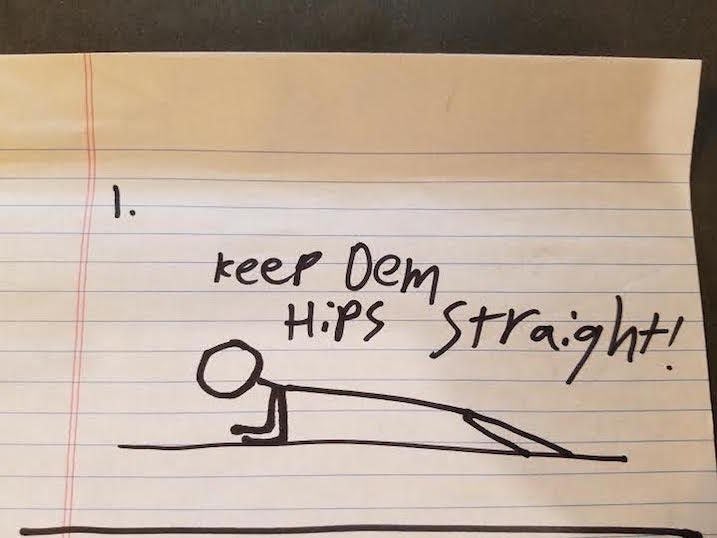 1.
Keep Dem
Hips Straight!